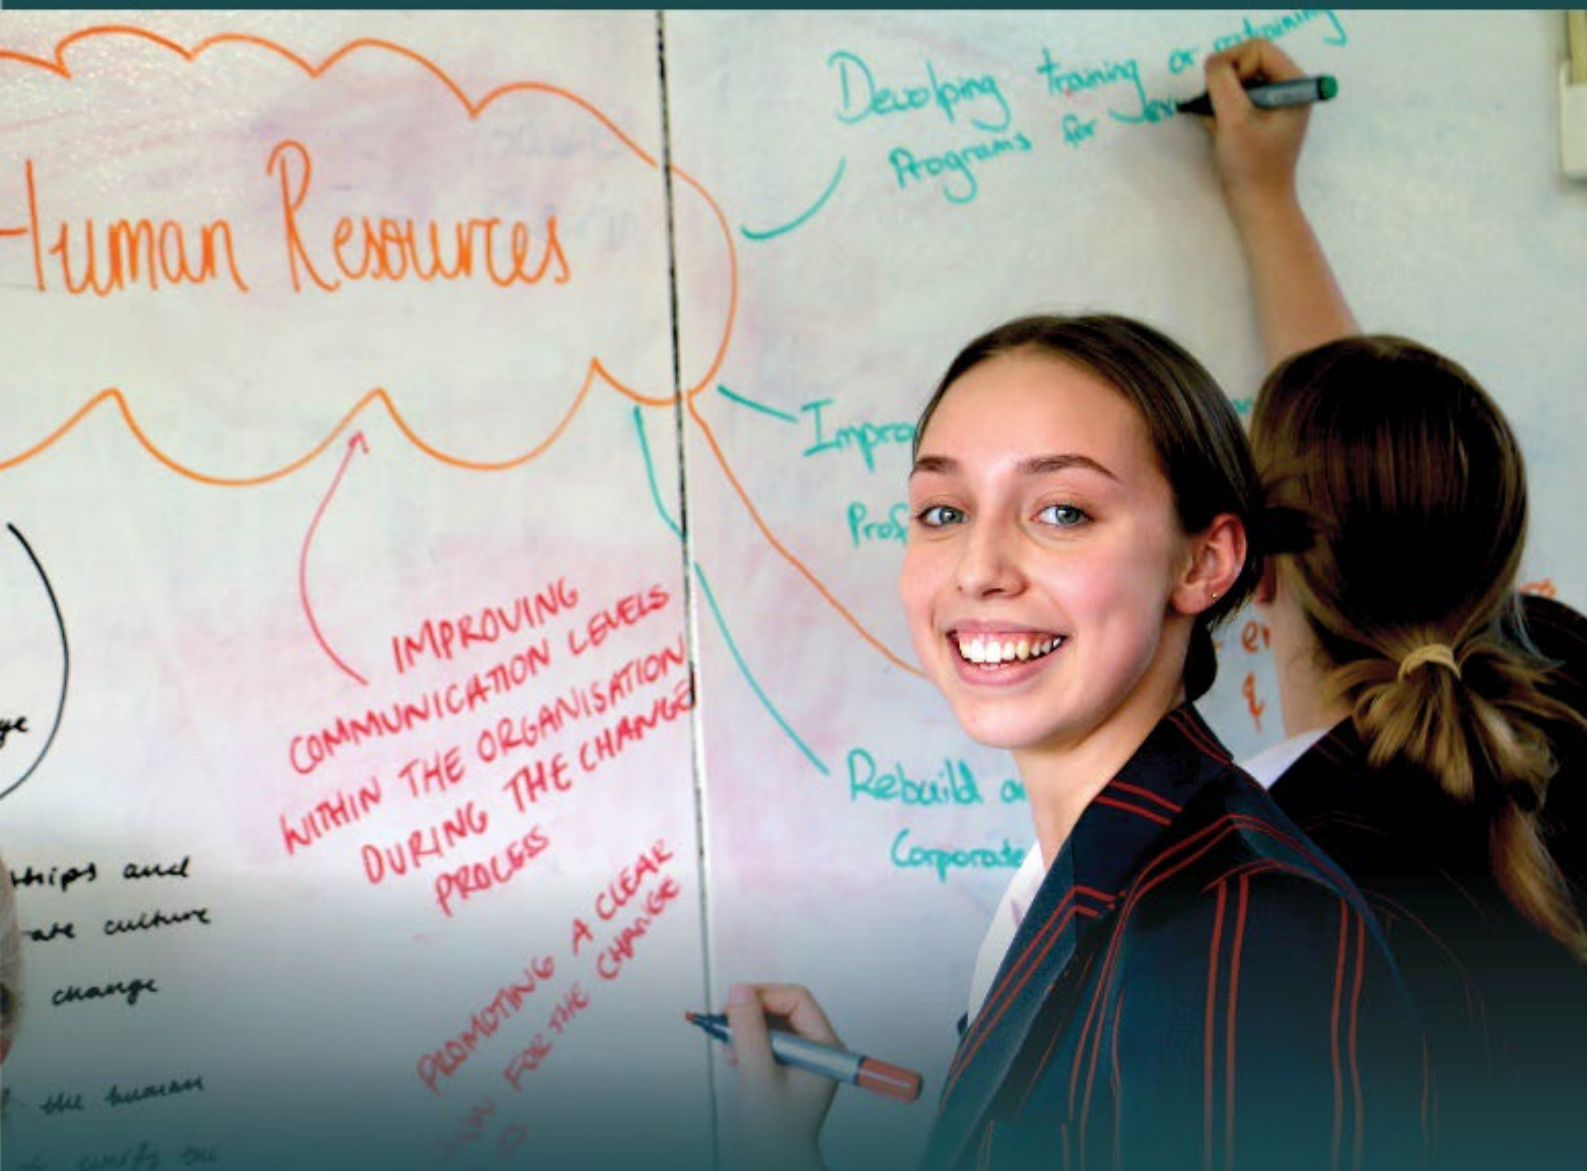 Human Resources
Devolping training or retraining
Programs for
Impro
Prof
Rebuild
Corporate
IMPROVING
COMMUNICATION LEVELS
WITHIN THE ORGANISATION
DURING THE CHANGE
PROCESS
PROMOTING A CLEAR
FOR THE CHANGE
ships and
ate culture
change
the human
the